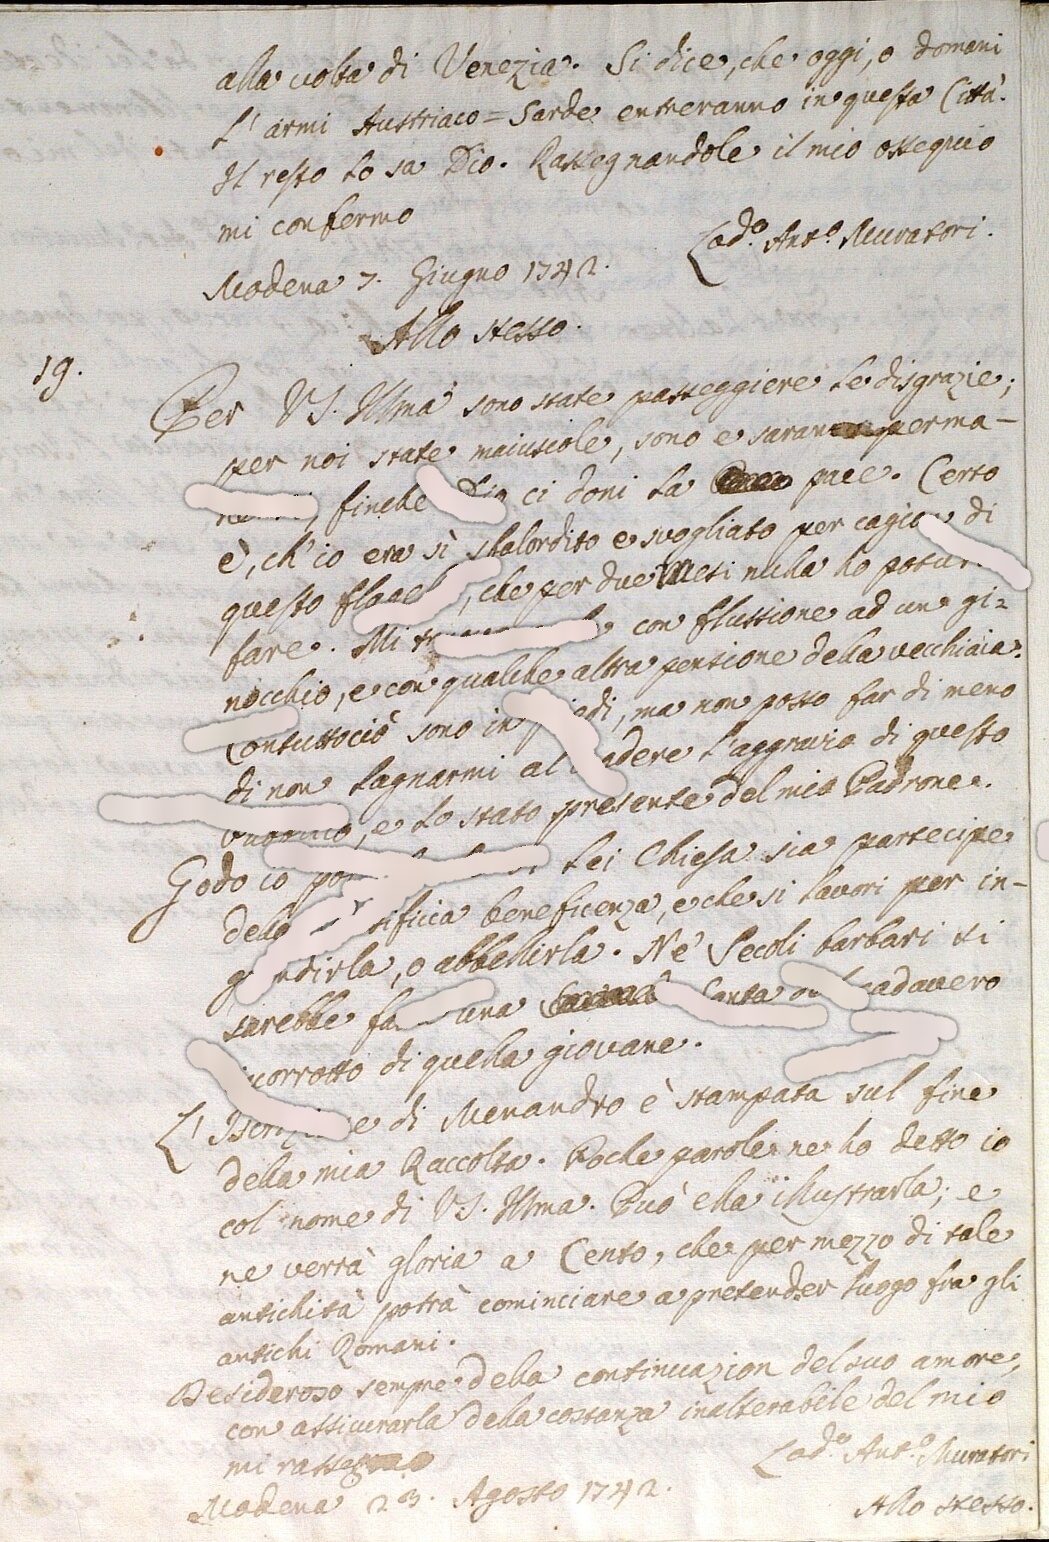 alla volta di Venezia. Si dice, che oggi, o domani
L'armi Austriaco=Sarde entreranno in questa Città.
Il resto lo sa Dio. Rassegnandole il mio ossequio
mi confermo
Lod.º Ant.º Muratori.
Modena 7. Giugno 1742.
Allo stesso.
19.
Per VS. Illma sono state passeggiere le disgrazie;
per noi state maiuscole, sono e saranno perma-
finche Dio ci doni la pace. Certo
è, ch'io era sì sbalordito e svogliato per cagion di
questo che per due Mesi nulla ho
fare. Mi con flussione ad un gi-
nocchio, e con qualche altra pensione della vecchiaia.
Contuttociò sono in piedi, ma non posso far di meno
di non lagnarmi al vedere l'aggravio di questo
e lo stato presente del mio Padrone.
Godo io Lei Chiesa sia partecipe
della beneficenza, e che si lavori per in-
grandirla, o abbellirla. Ne' Secoli barbari si
sarebbe una Santa cadavero
incorrotto di quella giovane.
L'Iscrizione di Menandro è stampata sul fine
della mia Raccolta. Poche parole ne ho detto io
col nome di VS. Illma. Può ella illustrarla; e
ne verrà gloria a Cento, che per mezzo di tale
antichità potrà cominciare a pretender luogo fra gli
antichi Romani.
Desideroso sempre della continuazion del suo amore,
con assicurarla della costanza inalterabile del mio
mi rassegno
Lod.º Ant.º Muratori
Modena 23. Agosto 1742.
Allo stesso.